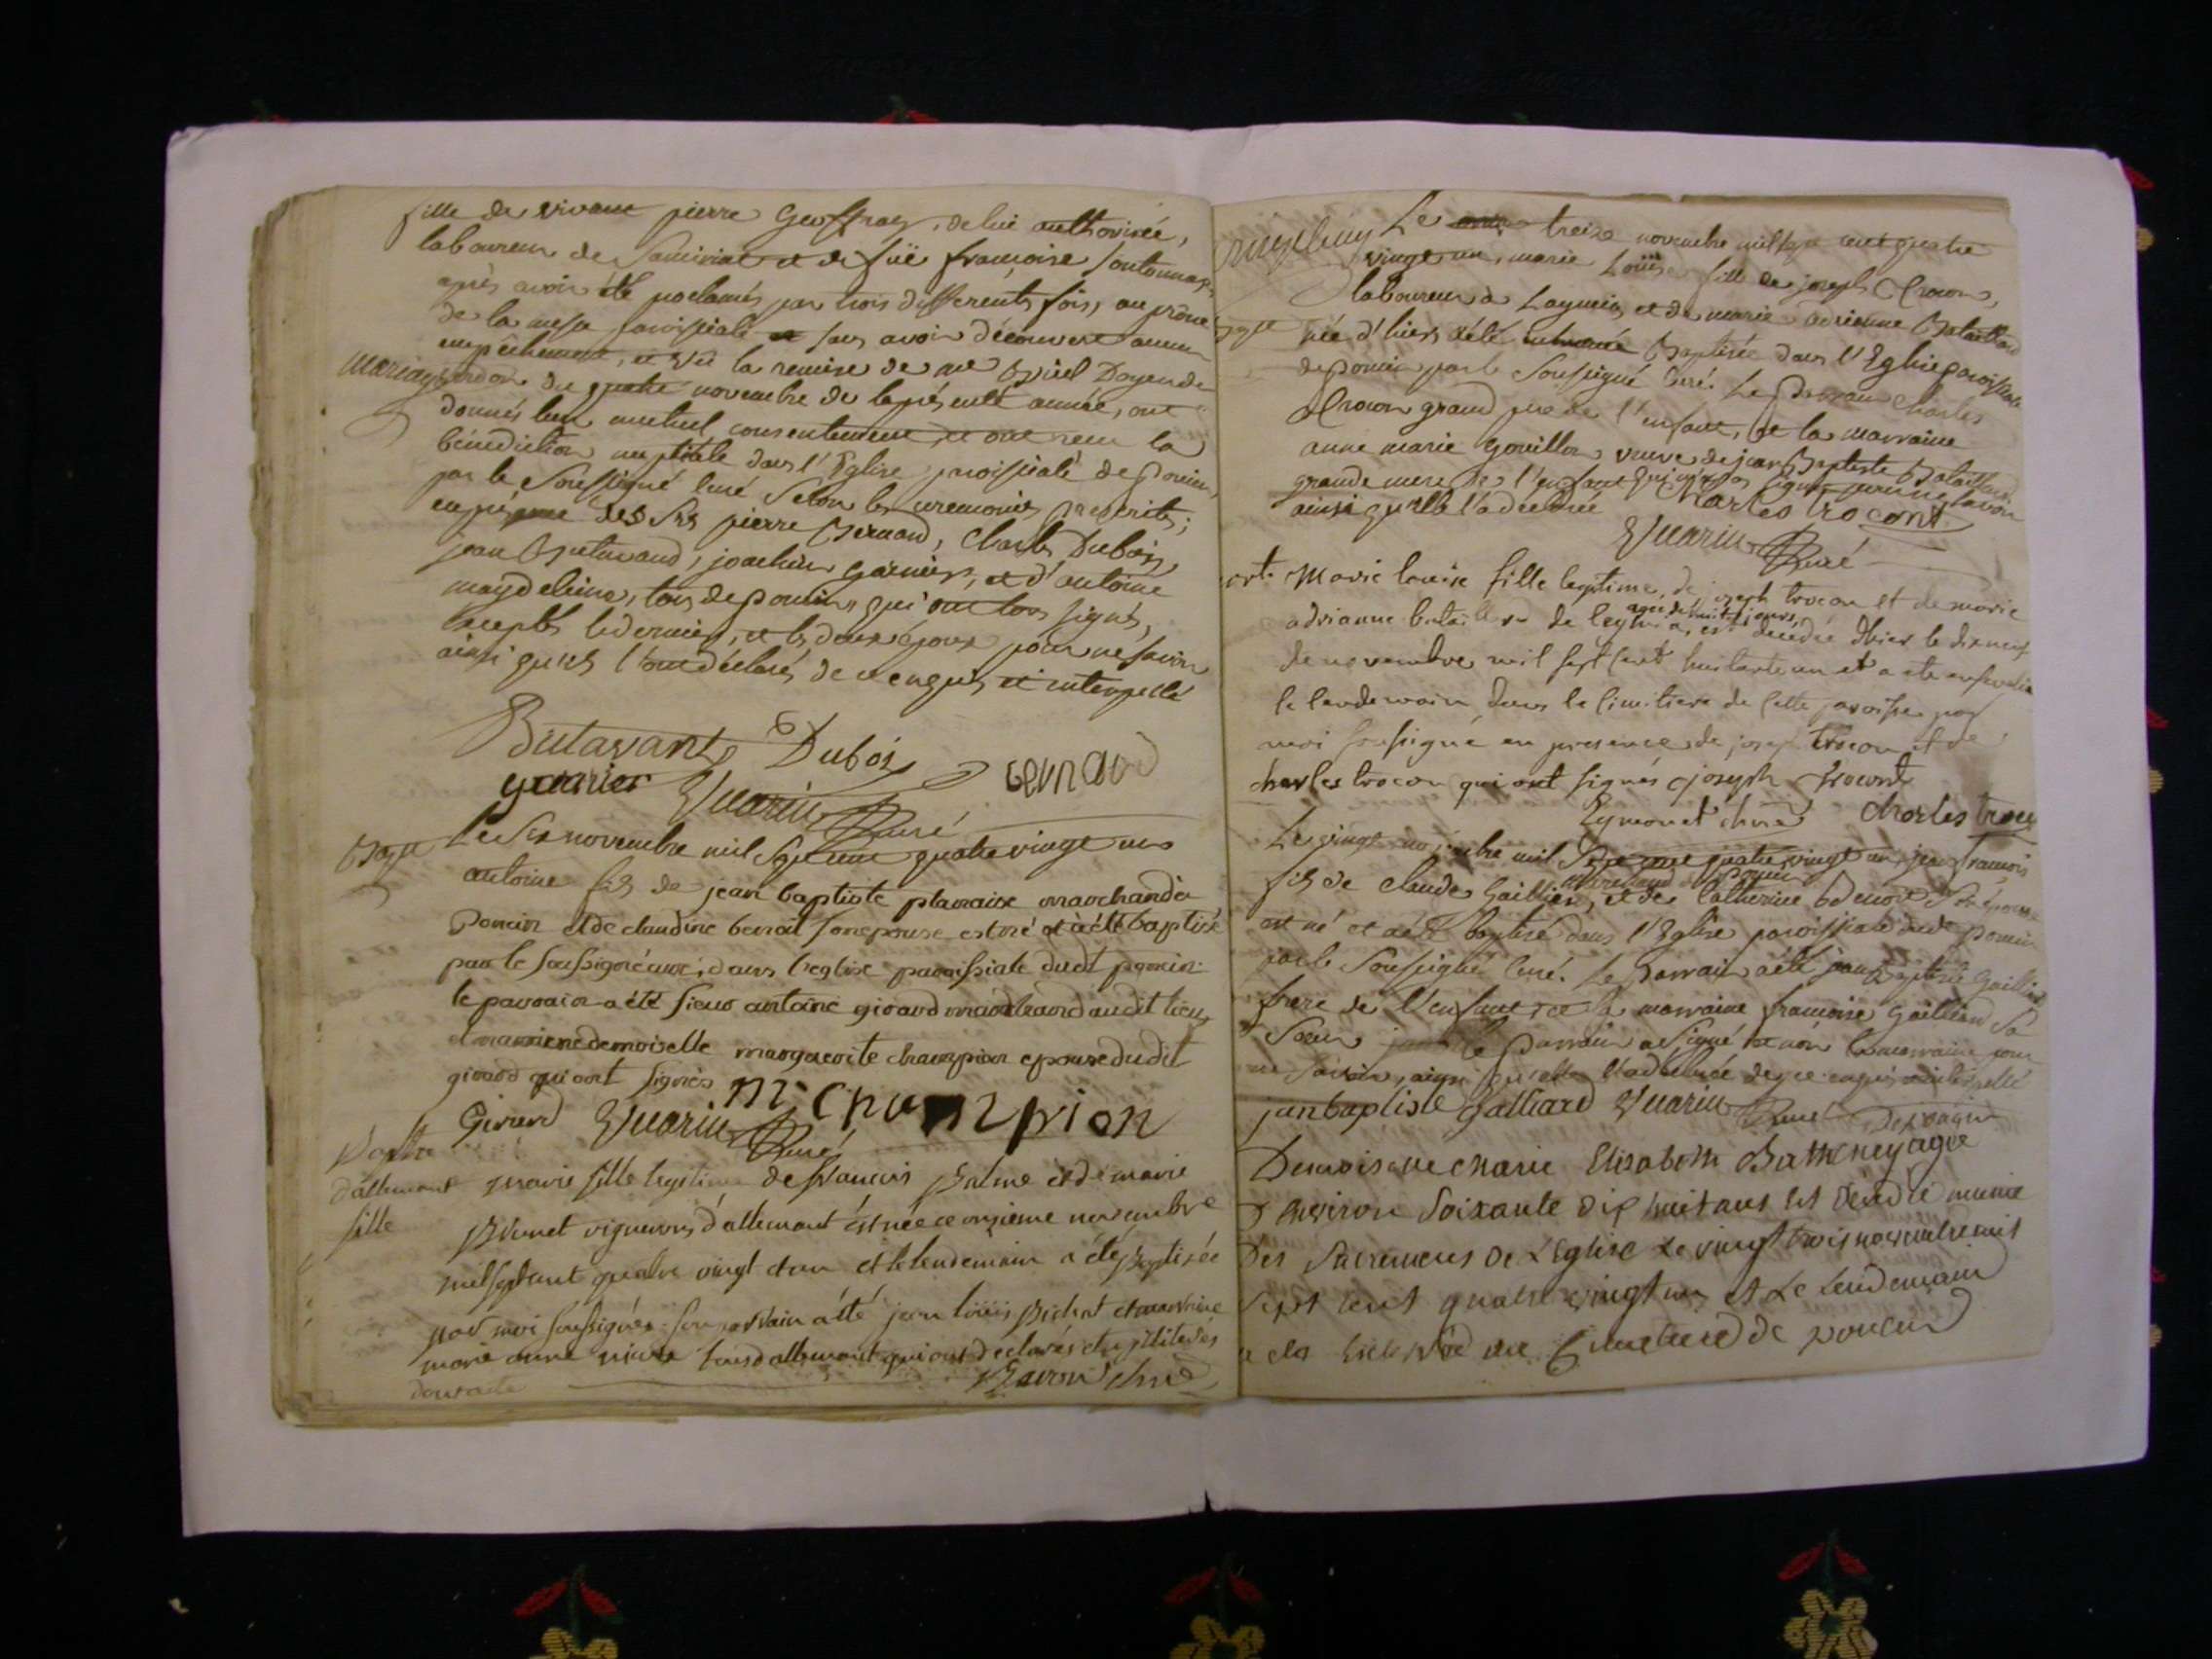 fille de vivant pierre Geoffray, de lui authorisée,
laboureur de et de füe françoise
après avoir été proclamés par trois differents fois, au prône
de la messe paroissiale et sans avoir découvert aucun
empêchement, et vû la remise de me Doyen de
mariage du quatre novembre de la présente année, ont
donnés leur mutuel consentement et ont reçu la
bénédiction nuptiale dans l'Eglise paroissiale de poncin,
par le Soussigné curé Selon les ceremonies prescrites;
en présence des Srs pierre Bernard, Charles Dubois,
jean Butavand, joachim garnier, et d'antoine
magdeleine, tous de poncin, qui ont tous signés,
exceptés le dernier, et les deux époux pour ne savoir
ainsi qu'ils l'ont déclarés, de ce enquis et interpellé
Butavant Dubois Bernard
garnier Curé
Bapt Le Six novembre mil Sept cent quatre vingt un
antoine fils de jean baptiste plantaix marchand à
Poncin et de claudine benoit son epouse est né et a été baptisé
par le soussigné curé, dans l'eglise paroissiale dudt poncin
le parrain a été sieur antoine girard marchand audit lieu
et marraine demoiselle margueritte champion epouse dudit
girard qui ont signés
m Champion
Girard Curé
Bapte
d'allemant marie fille legitime de francois Balme et de marie
fille Brunet vignerons d'allemant est née ce onzieme novembre
mil sept cent quatre vingt et un et le lendemain a été Baptisée
par moi soussigné son parrain a été jean loüis Bichat et marraine
marie anne tous d'allemant qui ont declarés etre illiterés
Bavron curé
Le treize novembre mil sept cent quatre
vingt un, marie Loüise fille de joseph Trocon,
laboureur à Leymia, et de marie adrienne Bataillard
Bapt née d'hier, a été Baptisée dans l'Eglise paroissiale
de poncin par le Soussigné curé. Le parrain Charles
Trocon grand père de l'enfant, et la marraine
anne marie Gouillon veuve de jean Baptiste Bataillard
grande mere de l'enfant qui n'a signé pour ne savoir
ainsi qu'elle l'a déclarée Charles trocont
Curé
ort. Marie louise fille legitime, de joseph trocon et de marie
agée de huit jours,
adrianne bataillard de leymia, est decedée dhier le dix neuf
de novembre mil sept cent huitante un et a ete ensevelie
le lendemain dans le cimetiere de cette paroisse par
moi soussigné en presence de joseph trocon et de
charles trocon qui ont signés joseph trocont
Eymonet curé Charles troco
Le vingt novembre mil Sept cent quatre vingt un, jean francois
marchand à poncin
fils de claude Gaillard, et de Catherine Benoit Son épouse
est né et a été baptisé dans l'Eglise paroissiale dudt poncin
par le Soussigné Curé. Le parrain a été jean Baptiste Gaillard
frere de l'enfant, et la marraine francoise Gaillard Sa
Soeur le parrain a signé et non la marraine pour
ne savoir, ainsi qu'elle l'a déclarée de ce enquis et interpellé
jan baptiste galliard Curé
Demoiselle Marie Elisabeth agée
D'environ Soixante dix huit ans est décédée munie
Des Sacremens de L'Eglise Le vingt trois novembre mil
Sept cent quatre vingt un et Le Lendemain
a été au Cimetiere de poncin